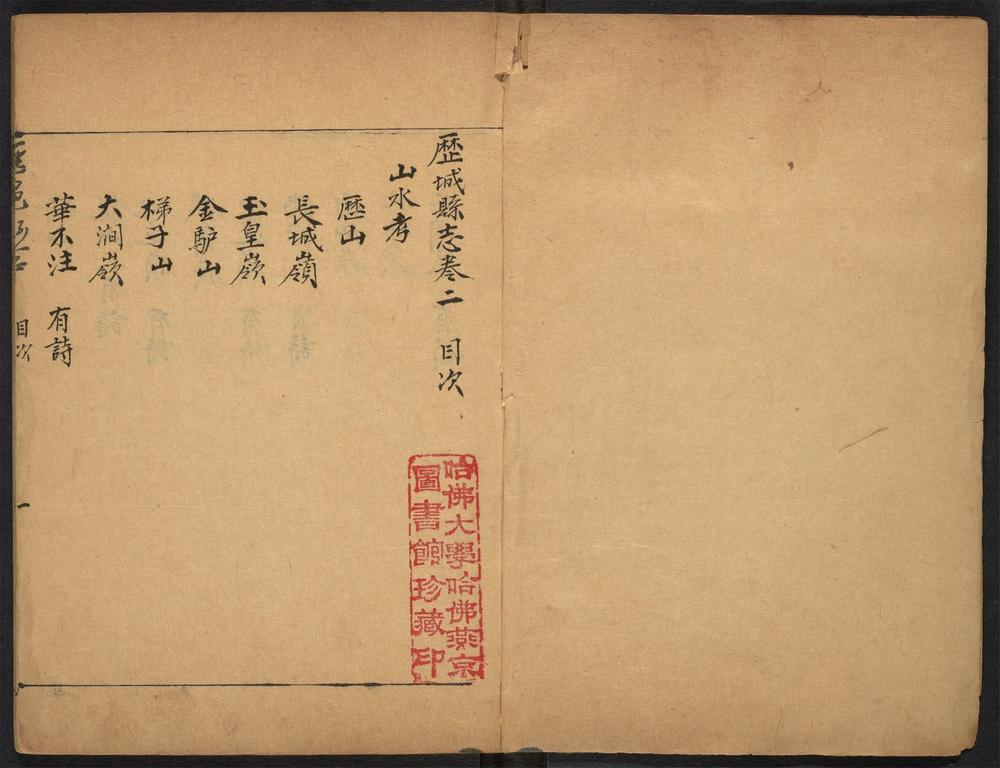 歷城縣志卷二 目次
山水考
歷山
長城嶺
玉皇嶺
金驴山
梯子山
大澗嶺
華不注 有詩
目次
一
哈佛大學哈佛燕京
圖書館珍藏印